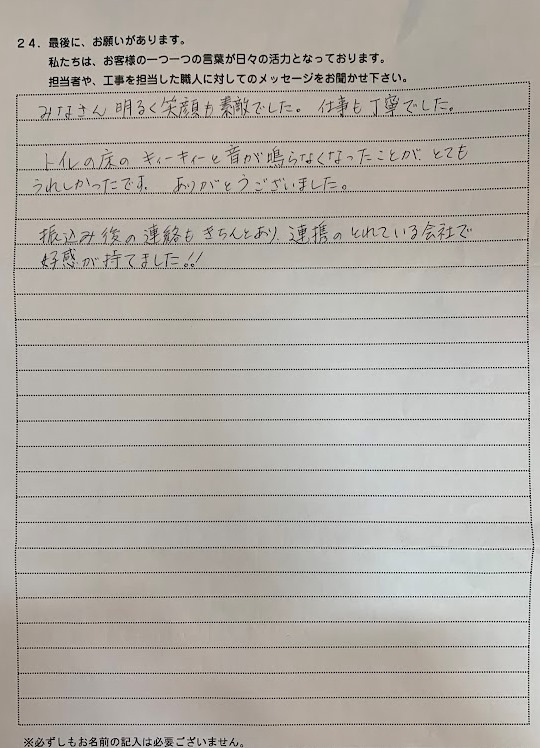 24. 最後に、お願いがあります。
私たちは、お客様の一つ一つの言葉が日々の活力となっております。
担当者や、工事を担当した職人に対してのメッセージをお聞かせ下さい。
みなさん 明るく笑顔も素敵でした。 仕事も丁寧でした。
トイレの床の キィーキィーと音が鳴らなくなったことが、とても
うれしかったです。 ありがとうございました。
振込み後の連絡も きちんとあり、連携のとれている会社で
好感が持てました!!
※必ずしもお名前の記入は必要ございません。